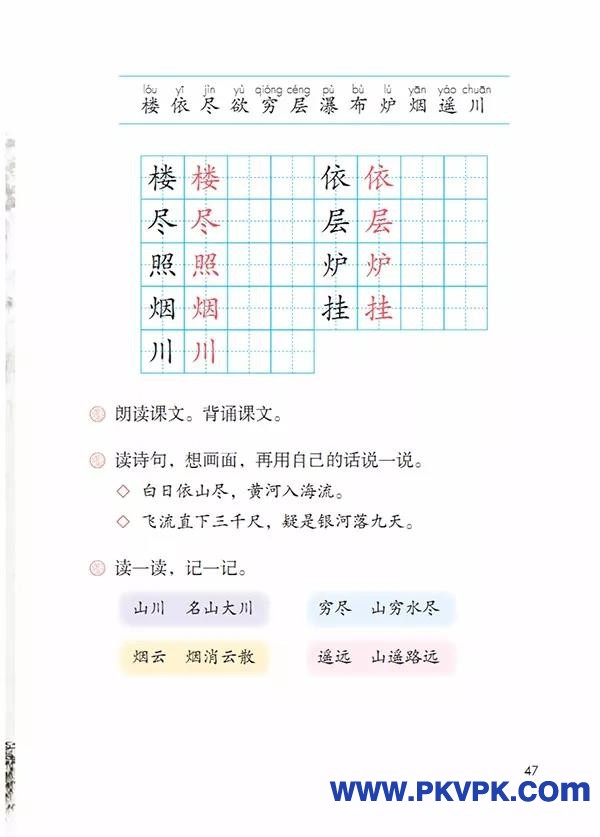 lóu yī jìn yù qióng céng pù bù lú yān yáo chuān
楼 依 尽 欲 穷 层 瀑 布 炉 烟 遥 川
楼 楼 依 依
尽 尽 层 层
照 照 炉 炉
烟 烟 挂 挂
川 川
朗读课文。背诵课文。
读诗句，想画面，再用自己的话说一说。
◇ 白日依山尽，黄河入海流。
◇ 飞流直下三千尺，疑是银河落九天。
读一读，记一记。
山川 名山大川 穷尽 山穷水尽
烟云 烟消云散 遥远 山遥路远
47
WWW.PKVPK.COM